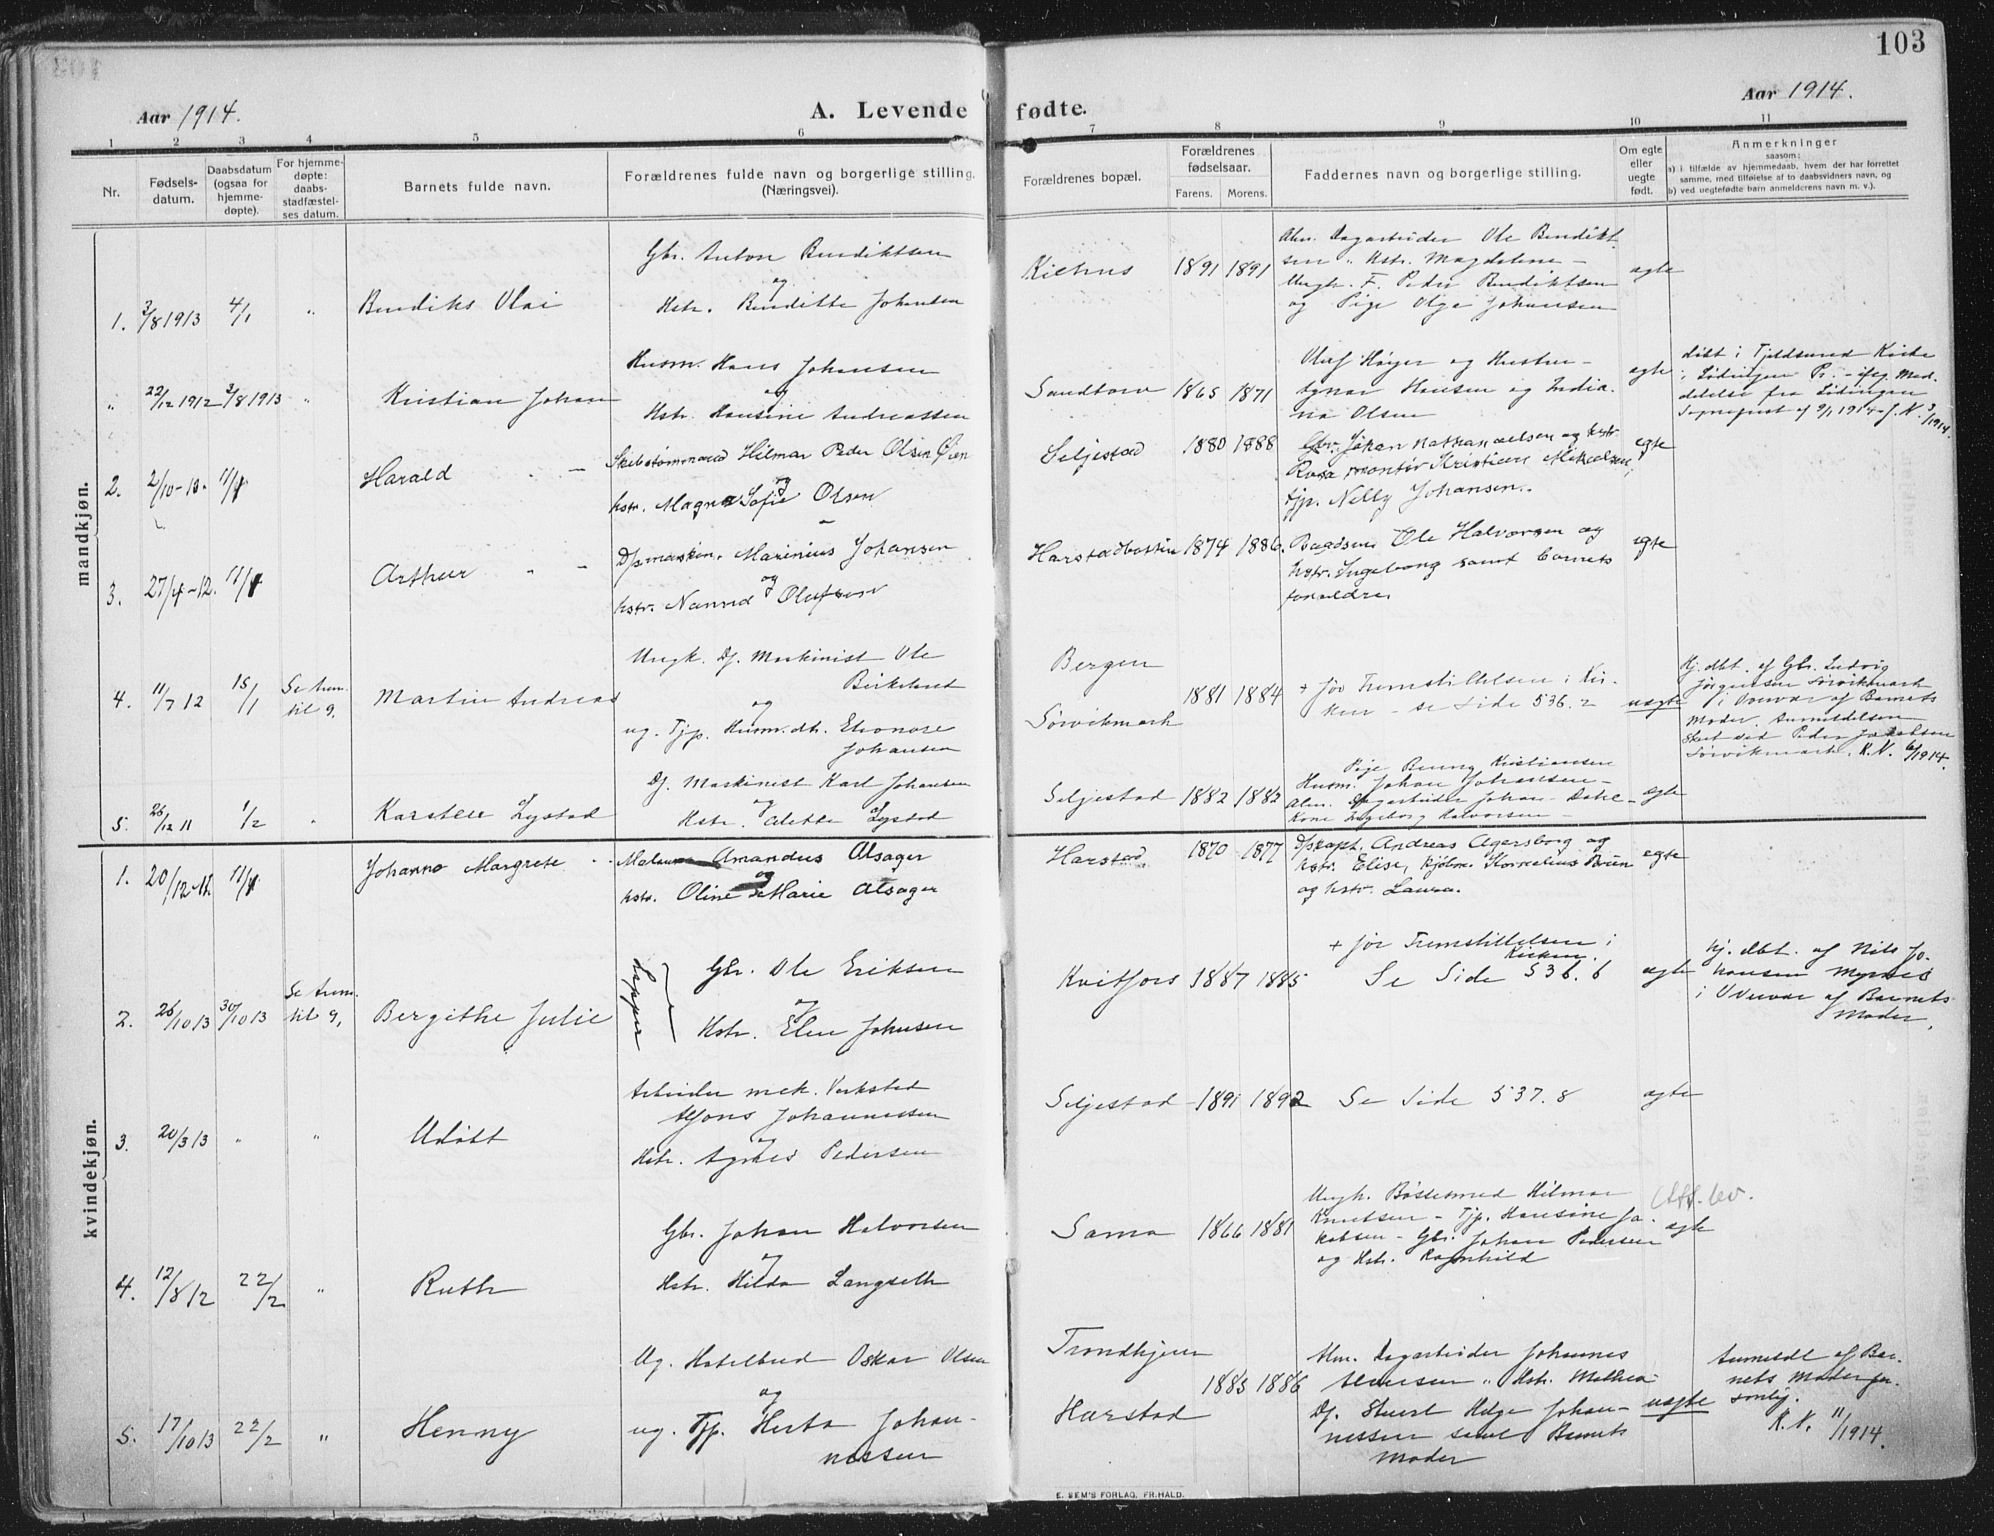 103
Aar 1914.
A. Levende fødte.
Aar 1914.
1 2 3 4 5 6 7 8 9 10 11
Nr.
Fødsels-
datum.
Daabsdatum
(ogsaa for
hjemme-
døpte).
For hjemme-
døpte:
daabs-
stadfæstel-
ses datum.
Barnets fulde navn.
Forældrenes fulde navn og borgerlige stilling.
(Næringsvei).
Forældrenes bopæl.
Forældrenes
fødselsaar.
Farens. Morens.
Faddernes navn og borgerlige stilling.
Om egte
eller
uegte
født.
Anmerkninger
saasom:
a) i tilfælde av hjemmedaab, hvem der har forrettet
samme, med tilføielse af to daabsvidners navn, og
b) ved uegtefødte barn anmelderens navn m. v.).
mandkjøn.
1. 3/8 1913 4/1 " Bendiks Olai
Gbr. Anton Bendiktsen
og
Hstr. Benditte Johansen
Kilhus 1891 1891
Alm. Dagarbeider Ole Bendikt
sen " Hstr. Magdalene -
Ungk. F. Peder Bendiktsen
og Pige Olga Johansen
ægte
" 22/12 1912 3/8 1913 " Kristian Johan
Husm. Hans Johansen
og
Hstr. Hansine Andreassen
Sandtorv 1865 1871
Oluf Høyer og Hustru -
Agnar Hansen og India-
na Olsen
ægte
døbt i Tjeldsund Kirke
i Lødingen Pr. - iføg. Med-
delelse fra Lødingen
Sogneprest af 9/1 1914 - J. N. 3/1914.
2. 2/10-13. 11/1 Harald " -
Skibstømmermand Hilmar Peder Olsen Øien
og
hstr. Magna Sofie Olsen
Seljestad 1880 1888
Gbr. Johan Nathanaelsen og hstr.
Rosa, montør Kristian Mikalsen,
tjp. Nelly Johansen.
egte
3. 27/4-12. 11/1 Arthur " -
D/pmaskin. Marinius Johansen
og
hstr. Nanna Olufsen
Harstadbotten 1874 1886.
Baadsm. Ole Halvorsen og
hstr. Ingeborg samt barnets
forældre
egte
4. 11/7 12 15/1 Se frem. til 9. Martin Andreas
Ungk. Df. Maskinist Ole
Birkeland
og
ug. Tjp. Husm.dtr. Elionore
Johansen
Bergen
Sørvikmark
1881 1884
+ før Fremstillelsen i Kir-
ken - se Side 536. 2
uegte
Hj. døbt. af Gbr. Ludvig
Jørgensen Sørvikmark
i Overvær af Barnets
Moder. Anmeldelsen
Sørvikmark. K.N. 6/1914.
5. 26/12 11 1/2 " Karsten Lystad
Df. Maskinist Karl Johansen
og
Hstr. Alette Lystad
Seljestad 1882 1883
Pige Benny Kristiansen
Husm. Johan Johansen -
Alm. Dagarbeider Johan Dahl -
Kone Ingeborg Halvorsen -
egte
kvindekjøn.
1. 20/12 11/1 Johanna Margrete " -
Amandus Alsager
og
hstr. Oline Marie Alsager
Harstad 1870 - 1877
D/skapt. Andreas Agersborg og
hstr. Elise, kjøbm. Kornelius Brun
og hstr. Laura.
egte
2. 26/10 13 30/10 13 Se frem. til 9. Bergithe Julie
Lapper
Gbr. Ole Eriksen
og
Hstr. Elen Johnsen
Kvitfors 1887 1885
+ før Fremstillelsen i
Kirken.
Se Side 536. 6
ægte
hj. døbt. af Nils Jo-
hansen Myrnes
i Overvær af Barnets
Moder.
3. 20/3 13 " " Udøbt
Arbeider mek. Verksted
Alfons Johannessen
og
Hstr. Agnes Pedersen
Seljestad 1891 1892 Se Side 537. 8 ægte
4. 12/8 12 22/2 " Ruth
Gbr. Johan Halvorsen
og
Hstr. Hilda Langseth
Sama 1866 1881
Ungk. Bøssesmed Hilmar
Knutsen - Tjp. Hansine Ja-
kobsen - Gbr. Johan Pedersen
og Hstr. Ragnhild
ægte
Att. lev.
5. 17/10 13 22/2 " Henny
Ug. Hotelbud Oskar Olsen
og
ug. Tjp. Herta Johan-
nessen
Trondhjem
Harstad
1885 1886
Alm. Dagarbeider Johannes
" Hstr. Mathea
Df. Stuert Helge Johan-
nessen samt Barnets
Moder
uegte
Anmeldt af Bar-
nets Moder per-
sonlig.
K. N. 11/1914.
E. SEM'S FORLAG, FR.HALD.